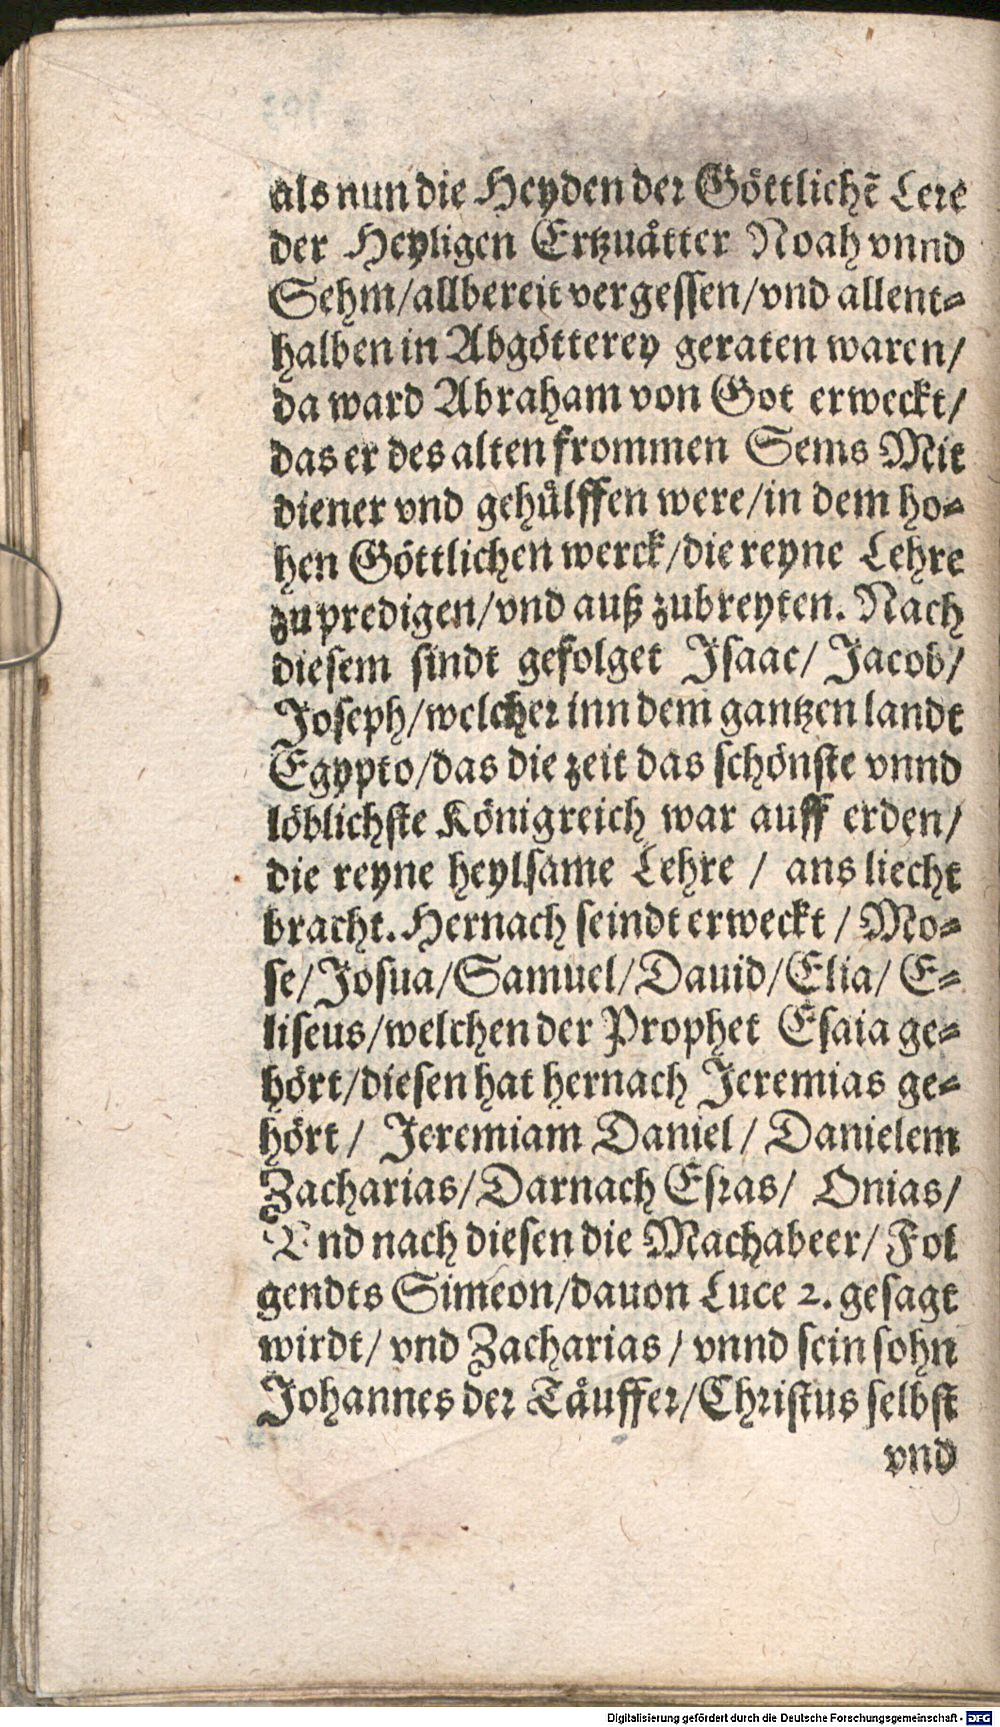 als nun die Heyden der Göttlichẽ Lere
der Heyligen Ertzuåtter Noah vnnd
Sehm/allbereit vergessen/vnd allent=
halben in Abgötterey geraten waren/
da ward Abraham von Got erweckt/
das er des alten frommen Sems Mit
diener vnd gehůlffen were/in dem ho=
hen Göttlichen werck/die reyne Lehre
zu predigen/vnd auß zubreyten. Nach
diesem sindt gefolget Isaac/ Jacob/
Joseph/welcher inn dem gantzen landt
Egypto/das die zeit das schönste vnnd
löblichste Königreich war auff erden/
die reyne heylsame Lehre / ans liecht
bracht. Hernach seindt erweckt / Mo=
se/Josua/Samuel/Dauid/Elia/ E=
liseus/welchen der Prophet Esaia ge=
hört/diesen hat hernach Jeremias ge=
hört / Jeremiam Daniel / Danielem
Zacharias/Darnach Esras/ Onias/
Vnd nach diesen die Machabeer/ Fol
gendts Simeon/dauon Luce 2. gesagt
wirdt/ vnd Zacharias / vnnd sein sohn
Johannes der Tåuffer/Christus selbst
vnd
Digitalisierung gefördert durch die Deutsche Forschungsgemeinschaft - DFG